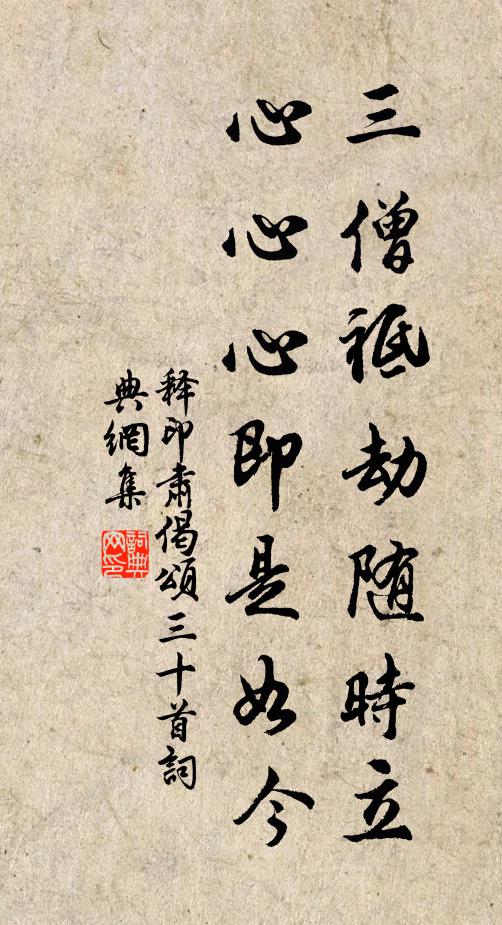 三僧祇劫随時立
心心心即是如今
释印肃偈頌三十首詞
典網集
詞典网印